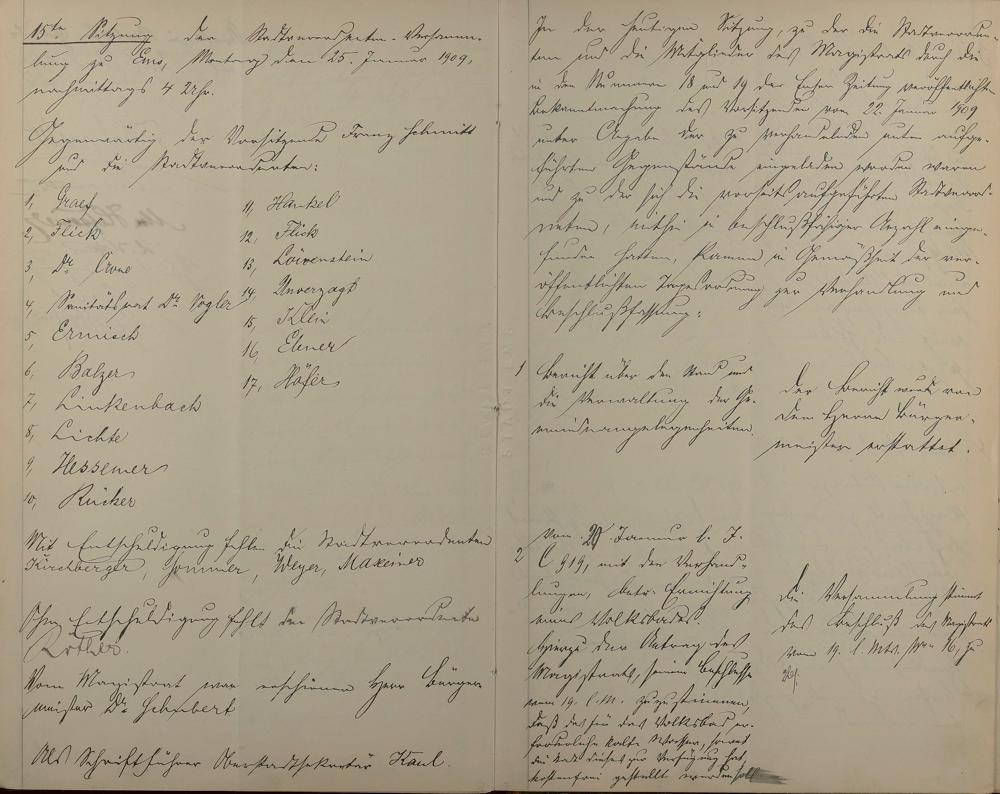 15te Sitzung der Stadtverordneten-Versamm-
lung zu Ems, Montag den 25. Januar 1909,
nachmittags 4 Uhr.
Gegenwärtig der Vorsitzende Franz Schmitt
und die Stadtverordneten:
1, Graef
2, Flick
3, Dr. Crone
4, Sanitätsrat Dr. Vogler
5, Ermisch
6, Balzer
7, Linkenbach
8, Lichte
9, Hessemer
10, Rücker
11, Hankel
12, Flick
13, Löwenstein
14, Unverzagt
15, Klein
16, Ebner
17, Höfer
Mit Entschuldigung fehlen die Stadtverordneten
Kirchberger, Sommer, Weyer, Maxeiner
Ohne Entschuldigung fehlt der Stadtverordnete
Vom Magistrat war erschienen Herr Bürger-
meister Dr. Schubert
Als Schriftführer Oberstadtsekretär Kaul.
In der heutigen Sitzung, zu der die Stadtverord-
neten und die Mitglieder des Magistrats durch die
in den Nummern 18 und 19 der Emser Zeitung veröffentlichte
Bekanntmachung des Vorsitzenden vom 22. Januar 1909
unter Angabe der zu verhandelnden unten aufge-
führten Gegenstände eingeladen worden waren
und zu der sich die vorseits aufgeführten Stadtverord-
neten, mithin in beschlußfähiger Anzahl einge-
funden hatten, kamen in Gemäßheit der ver-
öffentlichten Tagesordnung zur Verhandlung und
Beschlußfassung:
1 Bericht über den Stand und
die Verwaltung der Ge-
meindeangelegenheiten.
Der Bericht wurde von
dem Herrn Bürger-
meister erstattet.
2 Vom Januar l. J.
C 919, mit den Verhand-
lungen, betr. Errichtung
eines Volksbades.
Hierzu der Antrag des
Magistrats, seinem Beschlusse
vom 19. l. M. zuzustimmen,
daß das für das Volksbad er-
forderliche kalte Wasser, sowie
zur Verfügung
kostenfrei gestellt werden soll
Die Versammlung stimmt
dem Beschluß des Magistrats
vom 19. l. Mts. Nr. 16, zu